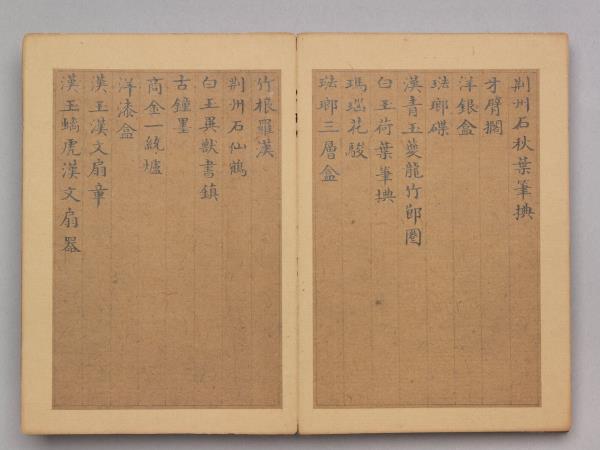 荆州石秋葉筆㨽
牙臂擱
洋銀盒
琺瑯碟
漢青玉夔龍竹節圈
白玉荷葉筆㨽
瑪瑙花駿
琺瑯三層盒
竹根羅漢
荆州石仙鶴
白玉異獸書鎮
古鐘墨
商金一統爐
洋漆盒
漢玉漢文扇章
漢玉螭虎漢文扇器